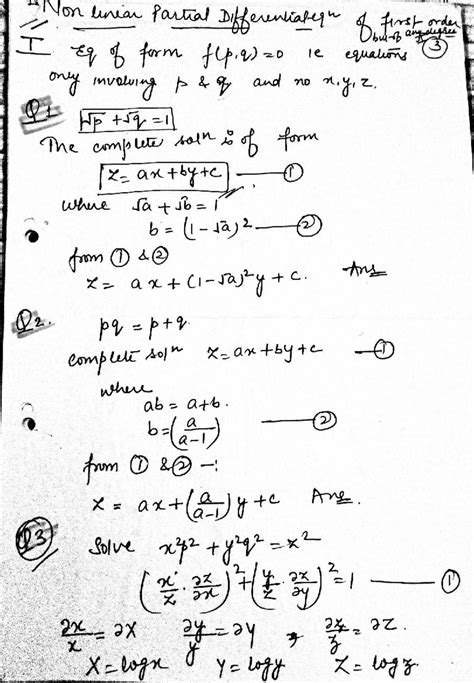 Non linear Partial Differential eqn of first order
but of any degree
I Eq of form f(p,q)=0 ie equations (3)
only involving p & q and no x,y,z.
Q1. √p+√q=1
The complete soln is of form
z=ax+by+c —— ①
where √a+√b=1
b=(1-√a)² —— ②
from ① & ②
z= ax+(1-√a)²y+c. Ans
Q2. pq=p+q
complete soln z=ax+by+c —— ①
where
ab=a+b.
b=(a/(a-1)) —— ②
from ① & ② –:
z= ax+(a/(a-1))y+c Ans.
Q3 Solve x²p²+y²q²=z²
(x/z · ∂z/∂x)²+(y/z · ∂z/∂y)²=1 —— ①
∂x/x=∂X ∂y/y=∂Y , ∂z/z=∂Z.
X=logx Y=logy Z=logz